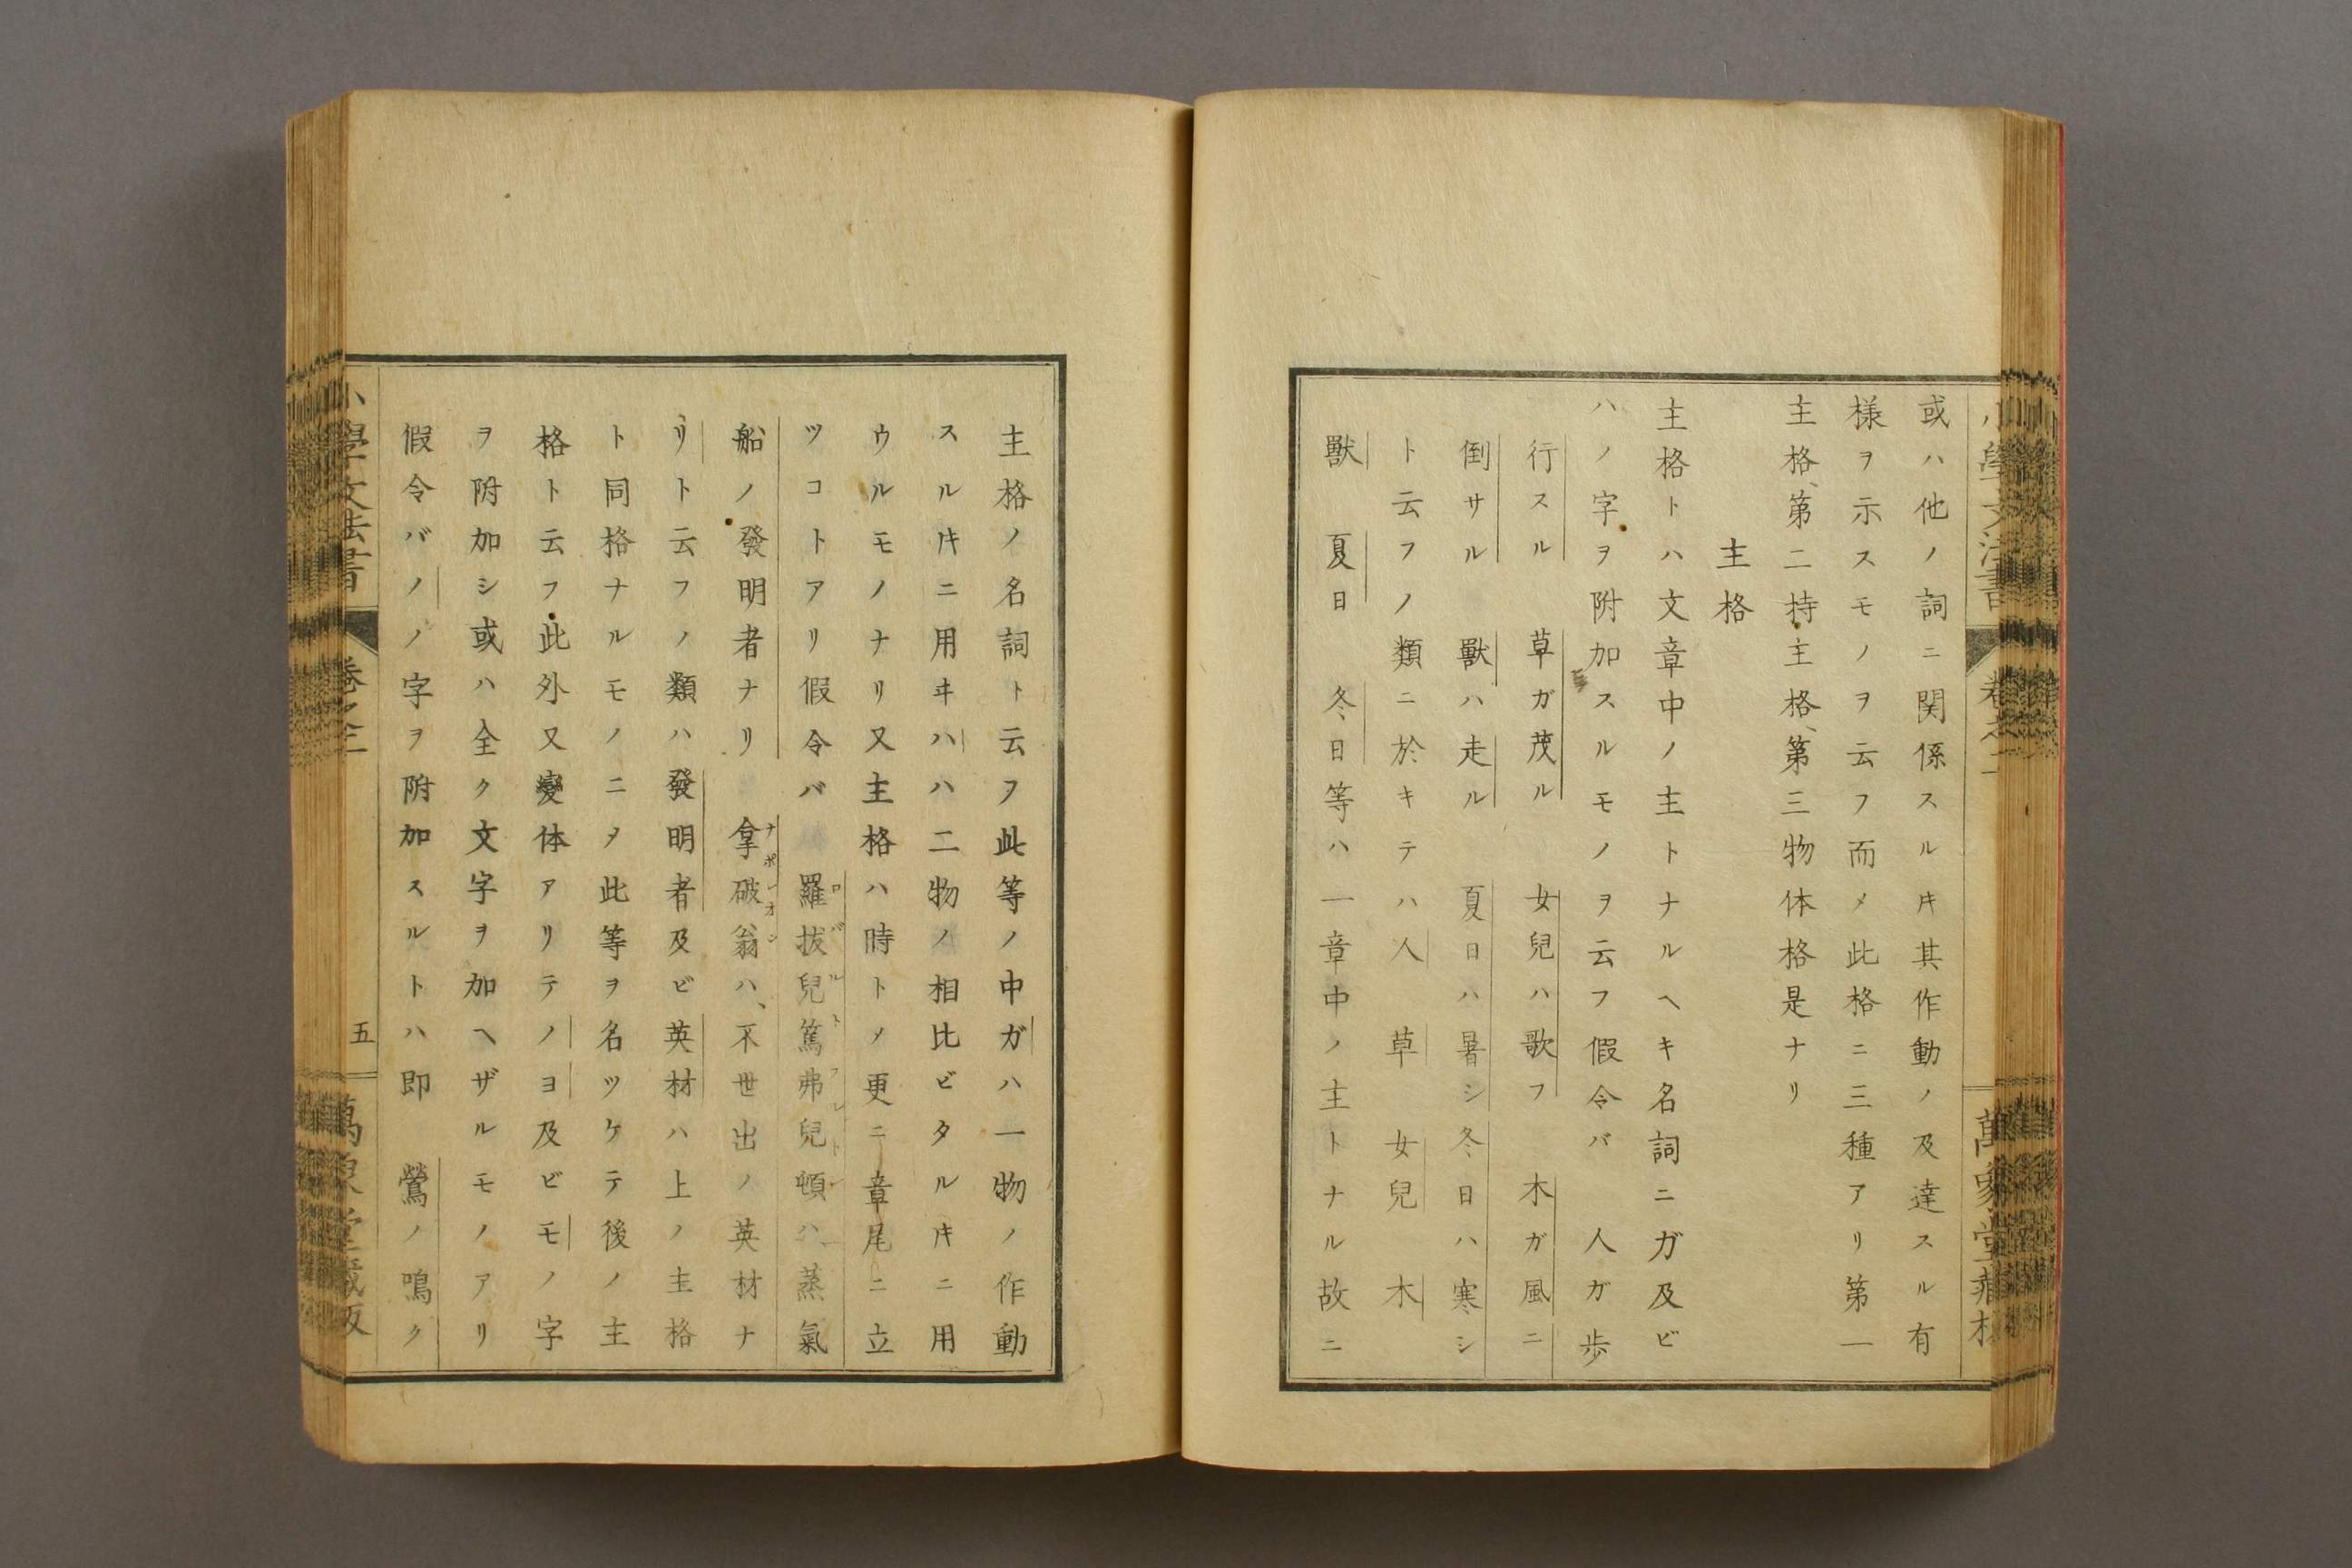 或ハ他ノ詞ニ関係スルヰ其作動ノ及達スル有
様ヲ示スモノヲ云フ而メ此格ニ三種アリ第一
主格、第二持主格、第三物体格是ナリ
主格
主格トハ文章中ノ主トナルヘキ名詞ニガ及ビ
ハノ字ヲ附加スルモノヲ云フ假令バ 人ガ歩
行スル 草ガ茂ル 女兒ハ歌フ 木ガ風ニ
倒サル 獸ハ走ル 夏日ハ暑シ冬日ハ寒シ
ト云フノ類ニ於キテハ人 草 女兒 木
獸 夏日 冬日等ハ一章中ノ主トナル故ニ
主格ノ名詞ト云ヲ此等ノ中ガハ一物ノ作動
スルヰニ用ヰハハ二物ノ相比ビタルヰニ用
ウルモノナリ又主格ハ時トメ更ニ章尾ニ立
ツコトアリ假令バ 羅拔兒篤弗兒頓ハ蒸氣
船ノ發明者ナリ 拿破翁ハ、不世出ノ英材ナ
リト云フノ類ハ發明者及ビ英材ハ上ノ主格
ト同格ナルモノニヲ此等ヲ名ツケテ後ノ主
格ト云フ此外又變体アリテノヨ及ビモノ字
ヲ附加シ或ハ全ク文字ヲ加ヘザルモノアリ
假令バノノ字ヲ附加スルトハ即 鶯ノ鳴ク
小學文法書 卷之二 五 萬象堂藏版